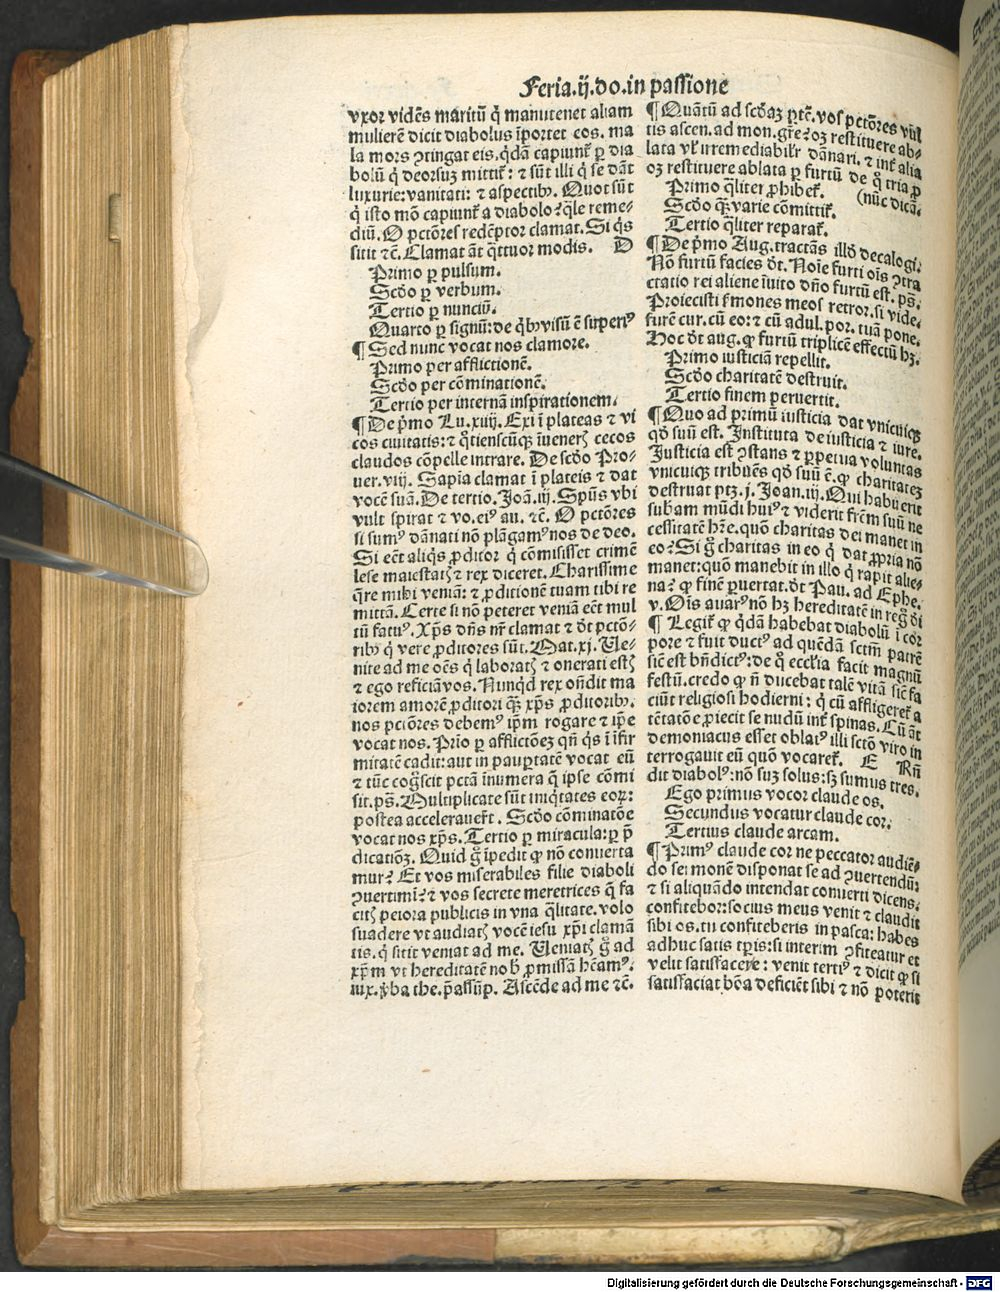 Feria.ij.do.in passione
vxor vidēs maritū q̄ manutenet aliam
mulierē dicit diabolus īportet eos. ma
la mors ꝯtingat eis. q̄dā capiunt̄ ꝑ dia
bolū q̄ deorsuꝫ mittit̄: ⁊ sūt illi q̄ se dāt
luxurie: vanitati: ⁊ aspectibꝰ. Quot sūt
q̄ isto mō capiunt̄ a diabolo? q̄le reme-
diū. O pctōres redēptor clamat. Si q̄s
sitit ⁊c̄. Clamat āt q̄ttuor modis. D
Primo ꝑ pulsum.
Scd̄o ꝑ verbum.
Tertio ꝑ nunciū.
Quarto ꝑ signū: de q̄bꝰ visū ē superiꝰ
¶ Sed nunc vocat nos clamore.
Primo per afflictionē.
Scd̄o per cōminationē.
Tertio per internā inspirationem.
¶ De p̄mo Lu.xiiij. Exi ī plateas ⁊ vi
cos ciuitatis: ⁊ q̄tienscūqꝫ īuenerꝭ cecos
claudos cōpelle intrare. De scd̄o Pro-
uer.viij. Sapīa clamat ī plateis ⁊ dat
vocē suā. De tertio. Joā.iij. Spūs vbi
vult spirat ⁊ vo. eiꝰ au. ⁊c̄. O pctōres
si sumꝰ dānati nō plāgamꝰ nos de deo.
Si eēt aliq̄s ꝓditor q̄ cōmisisset crimē
lese maiestatꝭ ⁊ rex diceret. Charissime
q̄re mihi veniā: ⁊ ꝓditionē tuam tibi re
mittā. Certe si nō peteret veniā eēt mul
tū fatuꝰ. Xp̄s dn̄s nr̄ clamat ⁊ d̄t pctō-
ribꝰ q̄ vere ꝓditores sūt. Mat.xj. Ue-
nite ad me oēs q̄ laboratꝭ ⁊ onerati estꝭ
⁊ ego reficiā vos. Nunq̄d rex on̄dit ma
iorem amorē ꝓditori q̄ꝫ xp̄s ꝓditoribꝰ.
nos pctōres debemꝰ ip̄m rogare ⁊ ip̄e
vocat nos. Prīo ꝑ afflictōeꝫ qn̄ q̄s ī īfir
mitatē cadit: aut in pauꝑtatē vocat eū
⁊ tūc cog̊scit pctā īnumera q̄ ipse cōmi
sit. pꝰ. Multiplicate sūt iniq̄tates eoꝝ:
postea accelerauert̄. Scd̄o cōminatōe
vocat nos xp̄s. Tertio ꝑ miracula: ꝑ p̄
dicatiōꝫ. Quid g̊ īpedit ꝙ nō conuerta
mur? Et vos miserabiles filie diaboli
ꝯuertimī? ⁊ vos secrete meretrices q̄ fa
citꝭ peiora publicis in vna q̄litate. volo
suadere vt audiatꝭ vocē iesu xp̄i clamā
tis. q̄ sitit veniat ad me. Ueniatꝭ g̊ ad
xp̄m vt hereditatē nobꝭ ꝓmissā hēamꝰ.
iux. v̄ba the. p̄assūp. Ascēde ad me ⁊c̄.
¶ Quātū ad scd̄aꝫ ptē. vos pctōres vūl
tis ascen. ad mon. gr̄e? oꝫ restituere ab-
lata vl̓ irremediabilr̄ dānari. ⁊ int̄ alia
oꝫ restituere ablata ꝑ furtū de q̊ tria ꝓ
Primo q̄liter ꝓhibet̄. (nūc dicā.
Scd̄o q̄ꝫ varie cōmittit̄.
Tertio q̄liter reparat̄.
¶ De p̄mo Aug. tractās illd̓ decalogi.
Nō furtū facies d̄t. Noīe furti oīs ꝯtra
ctatio rei aliene īuito dn̄o furtū est. pꝰ.
Proiecisti s̄mones meos retror. si vide-
s fure cur. cū eo: ⁊ cū adul. por. tuā pone.
Hoc d̄t aug. ꝙ furtū triplicē effectū hꝫ.
Primo iusticiā repellit.
Scd̄o charitatē destruit.
Tertio finem peruertit.
¶ Quo ad primū iusticia dat vnicuiqꝫ
qd̓ suū est. Instituta de iusticia ⁊ iure.
Justicia est ꝯstans ⁊ ꝑpetua voluntas
vnicuiqꝫ tribuēs qd̓ suū ē. ꝙ charitateꝫ
destruat ptꝫ. j. Joan.iij. Qui habuerit
subam mūdi huiꝰ ⁊ viderit fr̄em suū ne
cessitatē hr̄e. quō charitas dei manet in
eo? Si g̊ charitas in eo q̄ dat ꝓpria nō
manet: quō manebit in illo q̄ rapit alie-
na? ꝙ finē ꝑuertat. d̄t Pau. ad Ephe.
v. Oīs auarꝰ nō hꝫ hereditatē in reg̊ di
¶ Legit̄ ꝙ q̄dā habebat diabolū ī cor
pore ⁊ fuit ductꝰ ad quēdā sctm̄ patrē
sic̄ est bn̄dictꝰ: de q̊ eccl̓ia facit magnū
festū. credo ꝙ n̄ ducebat talē vitā sic̄ fa
ciūt religiosi hodierni: q̄ cū affligeret̄ a
tētatōe ꝓiecit se nudū int̄ spinas. Cū āt
demoniacus esset oblatꝰ illi sctō viro in
terrogauit eū quō vocaret̄. E Rn̄
dit diabolꝰ: nō suꝫ solus: sꝫ sumus tres.
Ego primus vocor claude os.
Secundus vocatur claude cor.
Tertius claude arcam.
¶ Primꝰ claude cor ne peccator audiē-
do sermonē disponat se ad ꝯuertendū:
⁊ si aliquādo intendat conuerti dicens.
confitebor: socius meus venit ⁊ claudit
sibi os. tu confiteberis in pasca: habes
adhuc satis tp̄is: si interim ꝯfiteatur et
velit satisfacere: venit tertiꝰ ⁊ dicit ꝙ si
satisfaciat bōa deficiēt sibi ⁊ nō poterit
Digitalisierung gefördert durch die Deutsche Forschungsgemeinschaft - DFG